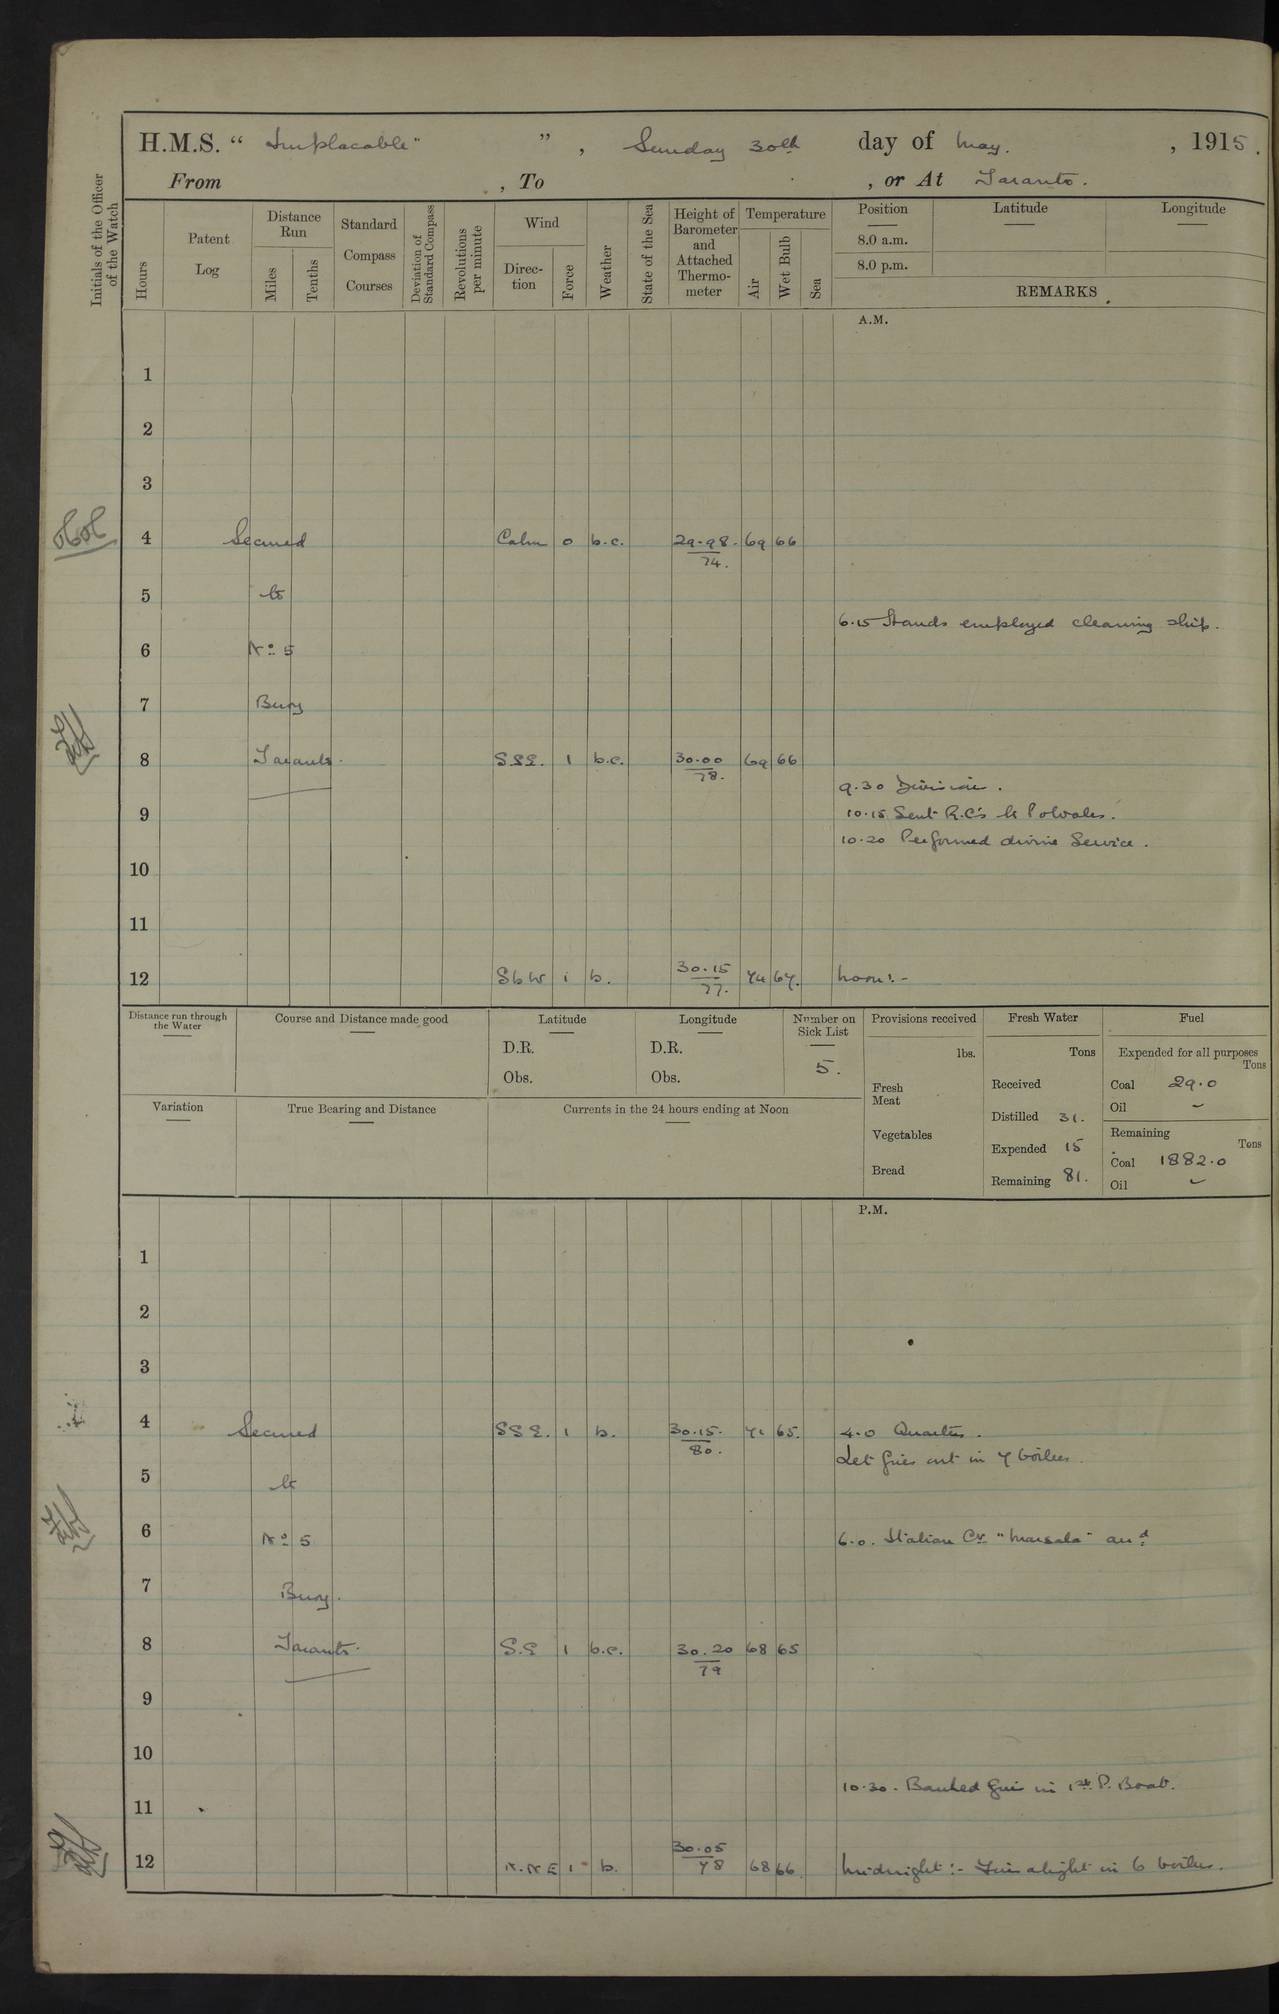 H.M.S. "Implacable" ", Sunday 30th day of May. , 1915.
From , To , or At Taranto.
Initials of the Officer of the Watch
Hours
Patent Log
Distance Run
Miles
Tenths
Standard Compass Courses
Deviation of Standard Compass
Revolutions per minute
Wind
Direction
Force
Weather
State of the Sea
Height of Barometer and Attached Thermometer
Temperature
Air
Wet Bulb
Sea
Position Latitude Longitude
8.0 a.m.
8.0 p.m.
REMARKS
A.M.
1
2
3
4 Secured Calm 0 b.c. 29.98. 69 66
74.
5 to
6.15 Hands employed cleaning ship.
6 No 5
7 Buoy
8 Taranto. S.S.E. 1 b.c. 30.00 69 66
78.
9.30 Division.
9 10.15 Sent R.C's to P of Wales.
10.20 Performed divine Service.
10
11
12 S b W 1 b. 30.15 74 67. Noon:-
77.
Distance run through the Water
Course and Distance made good
Latitude
D.R.
Obs.
Longitude
D.R.
Obs.
Number on Sick List
5.
Provisions received
lbs.
Fresh Meat
Vegetables
Bread
Fresh Water
Tons
Received
Distilled 31.
Expended 15
Remaining 81.
Fuel
Expended for all purposes
Tons
Coal 29.0
Oil –
Remaining
Tons
Coal 1882.0
Oil –
Variation
True Bearing and Distance
Currents in the 24 hours ending at Noon
P.M.
1
2
3
4 Secured S.S.E. 1 b. 30.15. 71 65. 4.0 Quarters.
80.
Let fires out in 7 boilers.
5 to
6 No 5 6.0. Italian Cr. "Marsala" arrd
7 Buoy.
8 Taranto. S.E 1 b.c. 30.20 68 65
79
9
10
10.30. Banked fires in 1st P. Boat.
11
12 N.N.E 1 b. 30.05 68 66. Midnight:- Fires alight in 6 boilers.
78